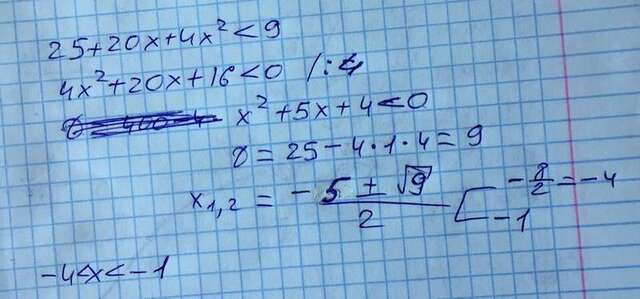 25+20x+4x²<9
4x²+20x+16<0 /:4
x²+5x+4<0
D=25-4·1·4=9
x₁,₂ = (-5±√9)/2 [ -8/2=-4
-1
-4<x<-1